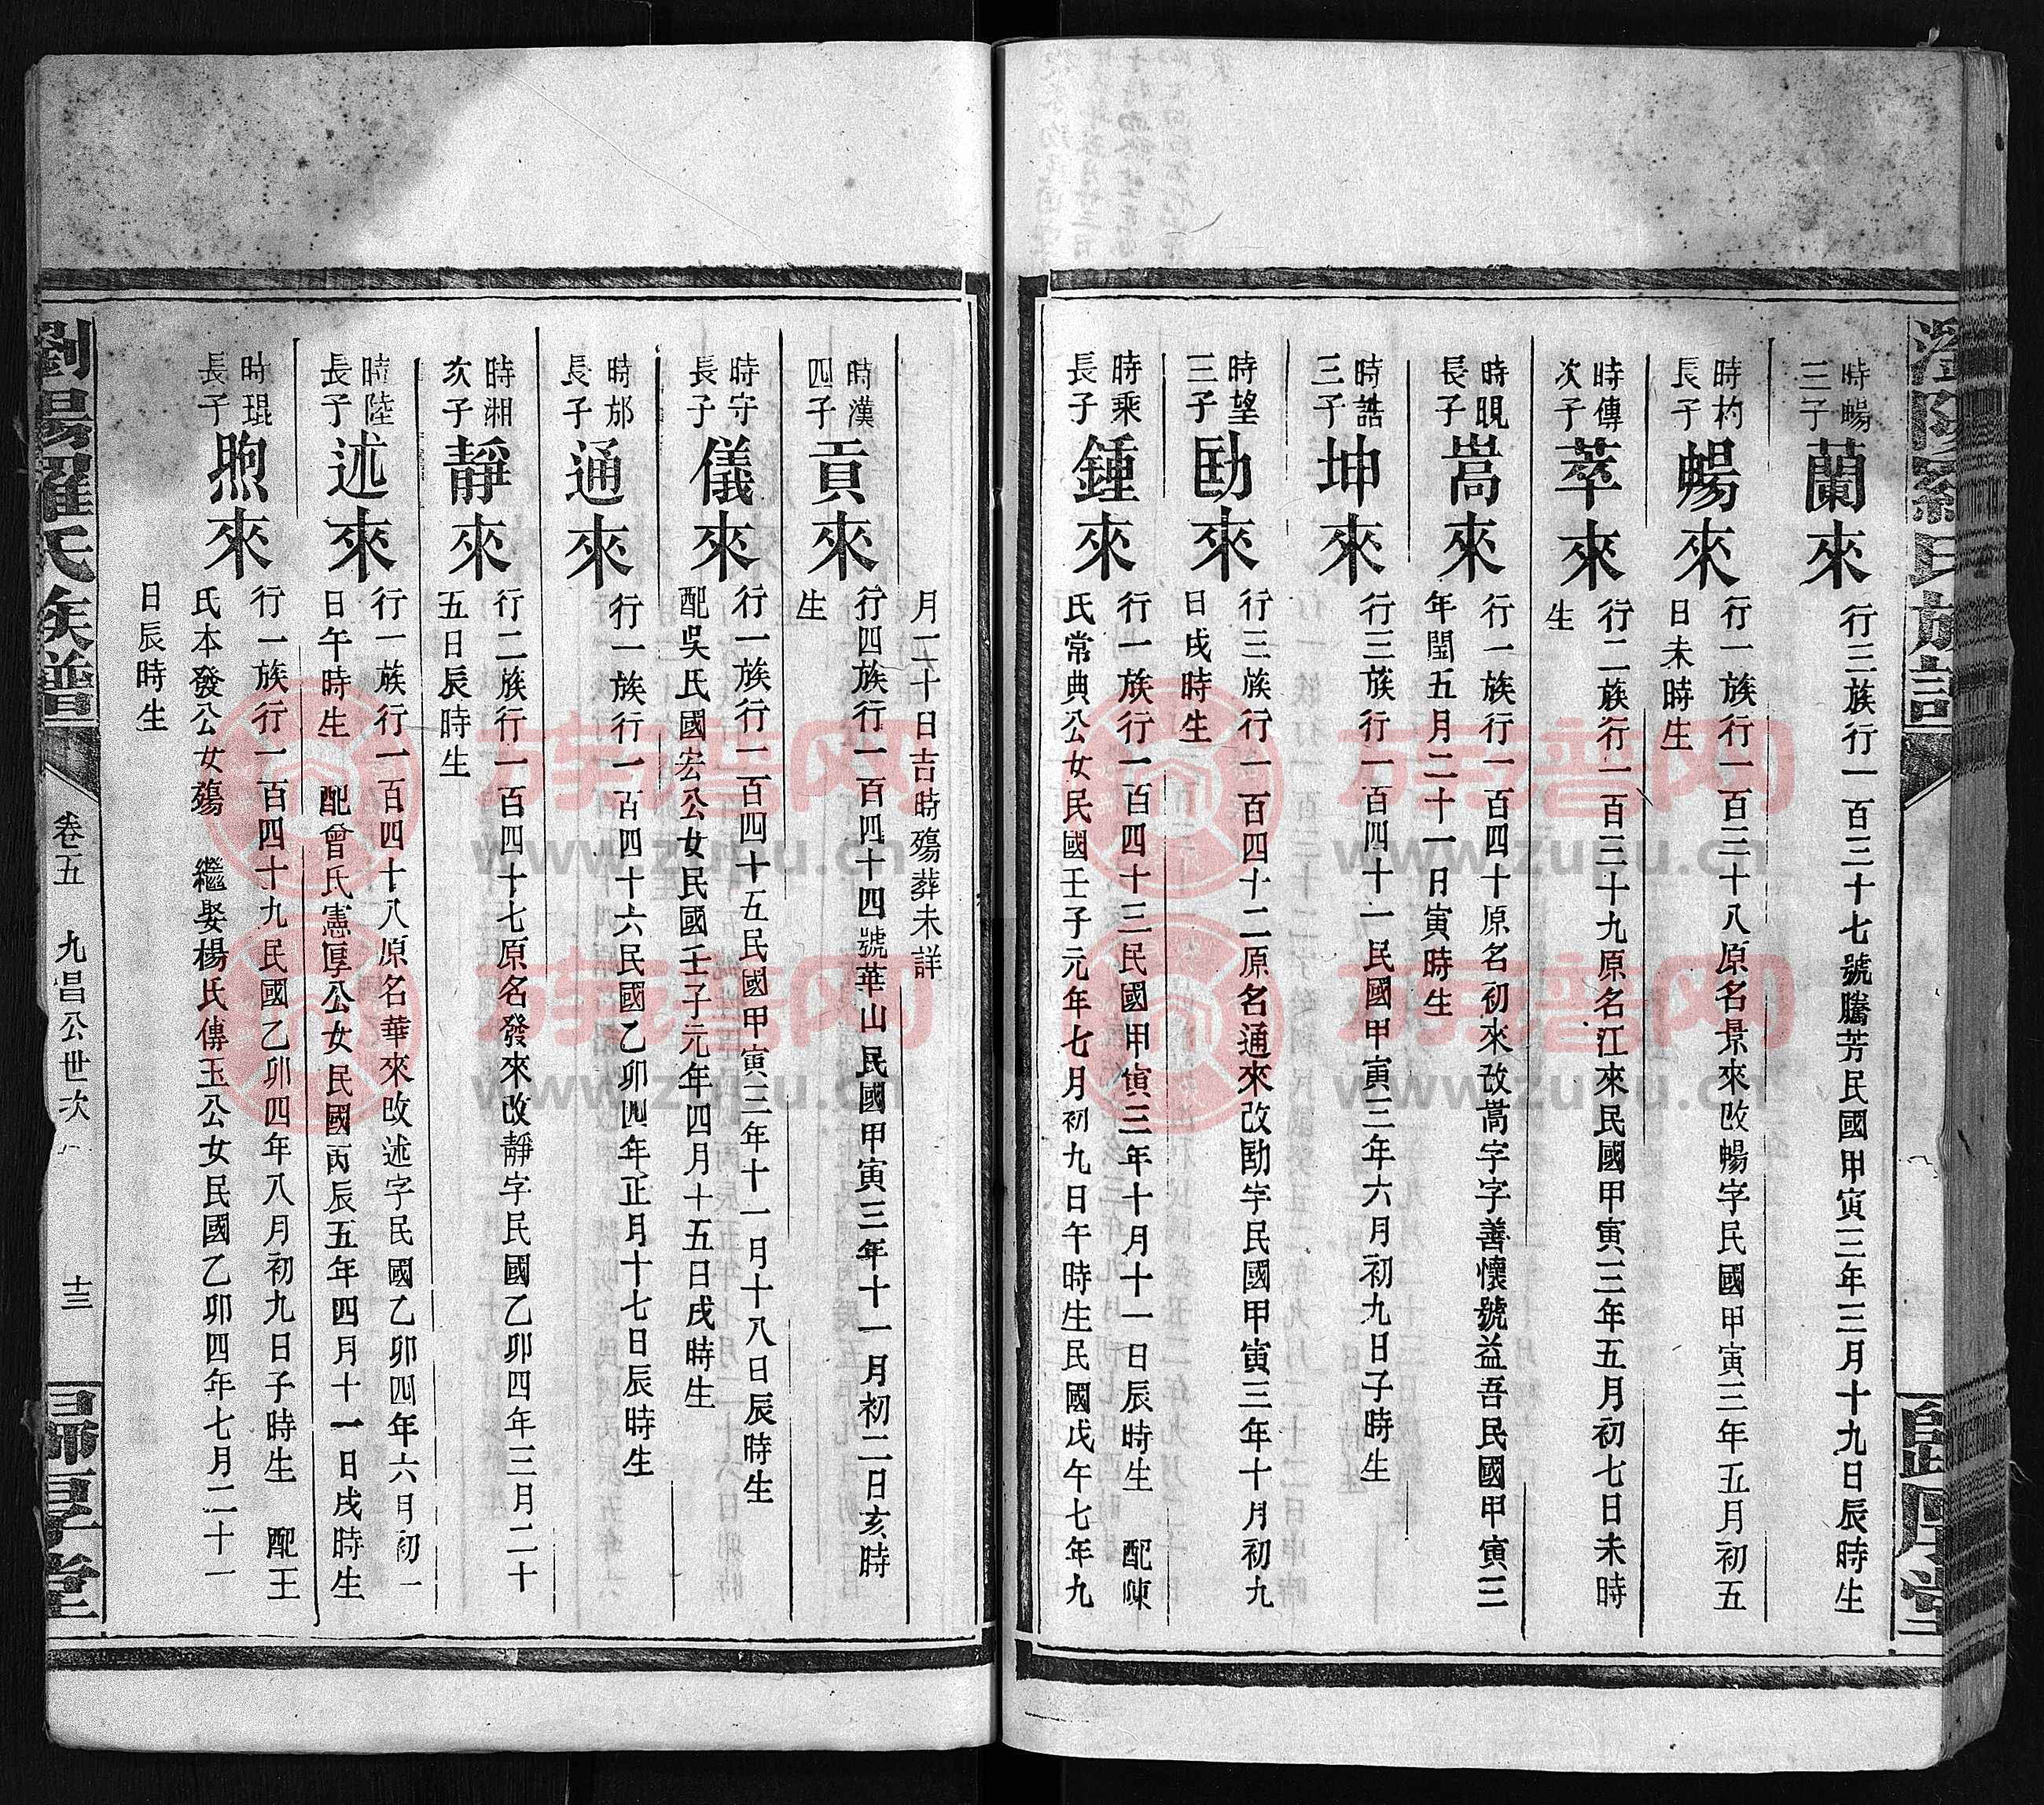 瀏陽羅氏族譜
歸厚堂
時暢三子
蘭來
行三族行一百三十七號騰芳民國甲寅三年三月十九日辰時生
時杓長子
暢來
行一族行一百三十八原名景來改暢字民國甲寅三年五月初五
日未時生
時傳次子
萃來
行二族行一百三十九原名江來民國甲寅三年五月初七日未時
生
時晛長子
嵩來
行一族行一百四十原名初來改嵩字字善懷號益吾民國甲寅三
年閏五月二十一日寅時生
時誥三子
坤來
行三族行一百四十一民國甲寅三年六月初九日子時生
時望三子
勛來
行三族行一百四十二原名通來改勛字民國甲寅三年十月初九
日戌時生
時乘長子
鍾來
行一族行一百四十三民國甲寅三年十月十一日辰時生 配陳
氏常典公女民國壬子元年七月初九日午時生民國戊午七年九
月二十日吉時殤葬未詳
時漢四子
貢來
行四族行一百四十四號華山民國甲寅三年十一月初二日亥時
生
時守長子
儀來
行一族行一百四十五民國甲寅三年十一月十八日辰時生
配吳氏國宏公女民國壬子元年四月十五日戌時生
時邡長子
通來
行一族行一百四十六民國乙卯四年正月十七日辰時生
時湘次子
靜來
行二族行一百四十七原名發來改靜字民國乙卯四年三月二十
五日辰時生
時陸長子
述來
行一族行一百四十八原名華來改述字民國乙卯四年六月初一
日午時生 配曾氏憲厚公女民國丙辰五年四月十一日戌時生
時琨長子
煦來
行一族行一百四十九民國乙卯四年八月初九日子時生 配王
氏本發公女殤 繼娶楊氏傳玉公女民國乙卯四年七月二十一
日辰時生
瀏陽羅氏族譜
卷五 九昌公世次
十三
歸厚堂
族譜网
www.zupu.cn
族譜网
www.zupu.cn
族譜网
www.zupu.cn
族譜网
www.zupu.cn